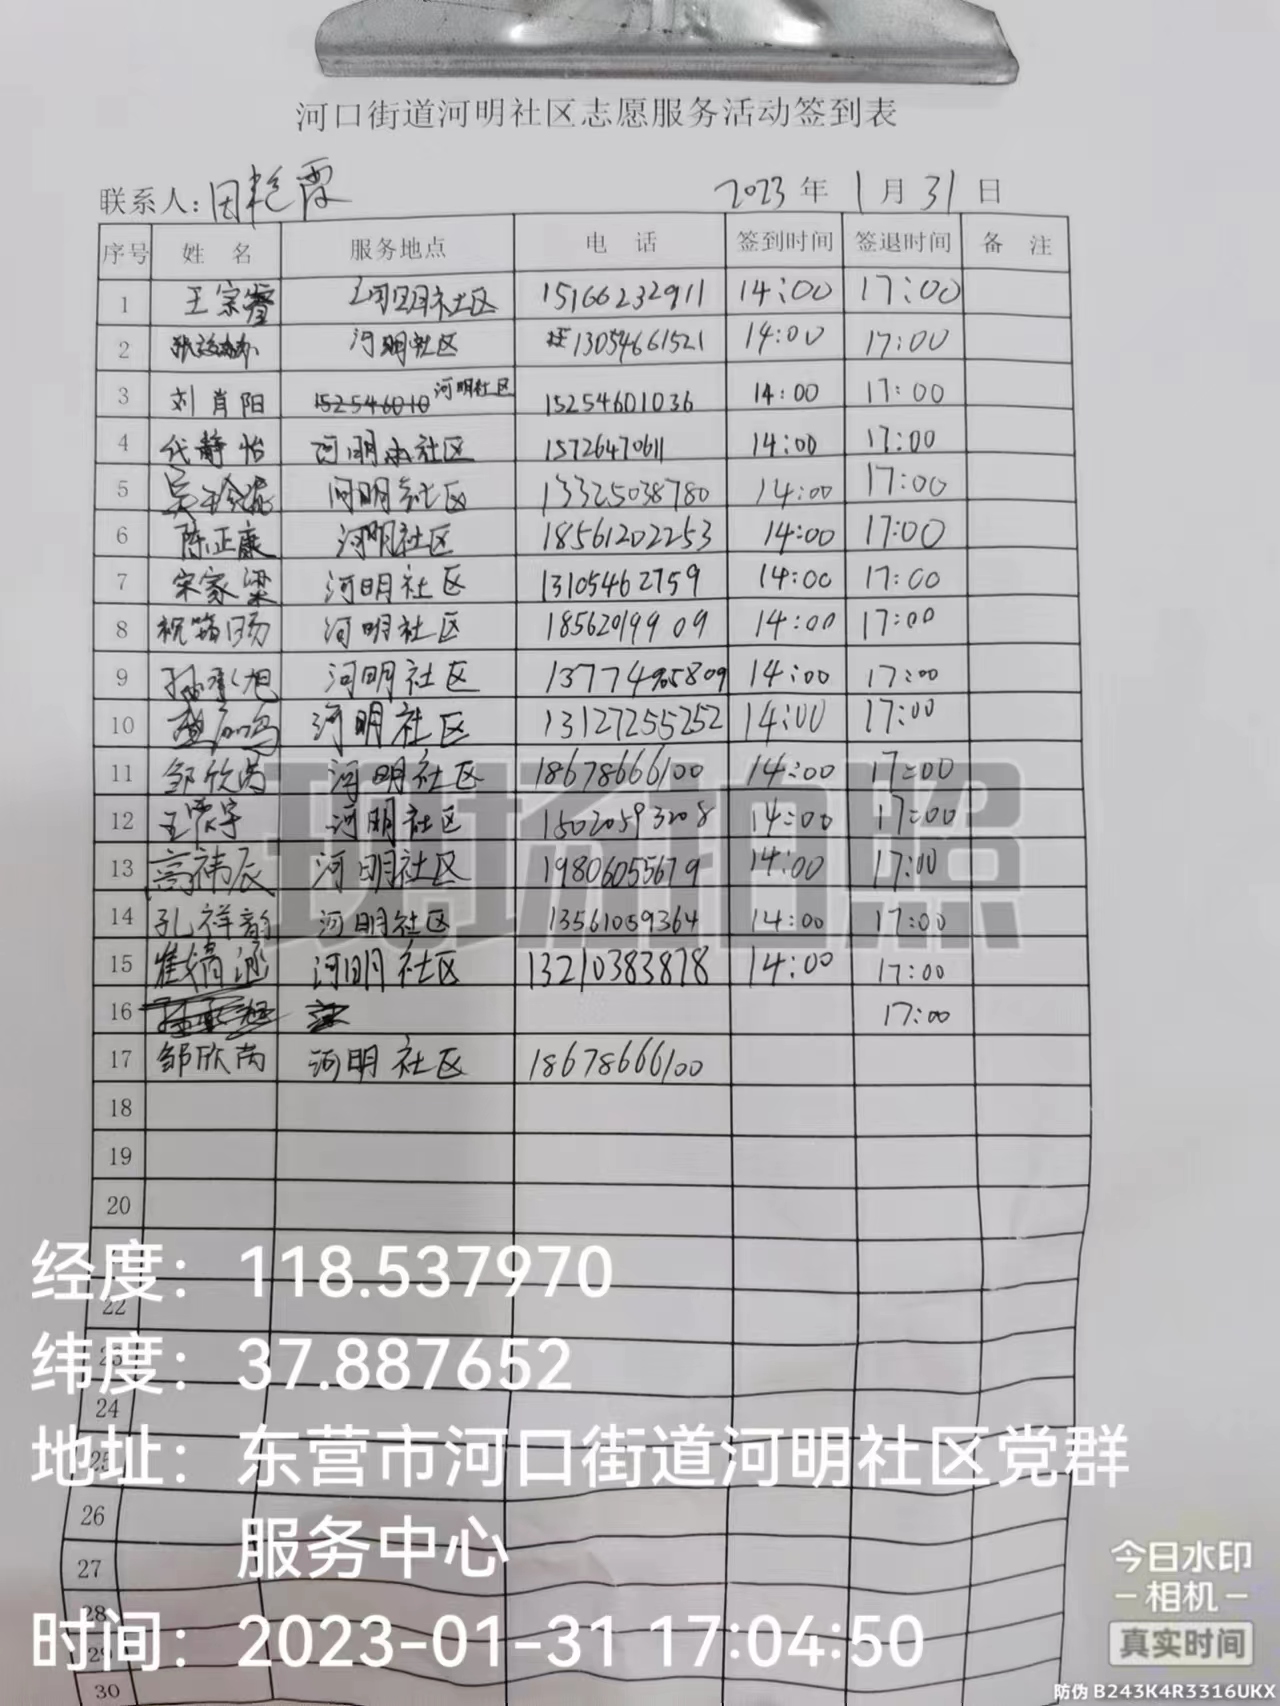 河口街道河明社区志愿服务活动签到表
联系人: 田艳霞 2023年1月31日
序号 姓名 服务地点 电话 签到时间 签退时间 备注
1 王宗睿 河明社区 15166232911 14:00 17:00
2 河明社区 13054661521 14:00 17:00
3 刘肖阳 152546010 河明社区 15254601036 14:00 17:00
4 代静怡 河明社区 15726470611 14:00 17:00
5 河明社区 13325038780 14:00 17:00
6 陈正康 河明社区 18561202253 14:00 17:00
7 宋家梁 河明社区 13105462759 14:00 17:00
8 河明社区 18562019909 14:00 17:00
9 孙承旭 河明社区 13774905809 14:00 17:00
10 河明社区 13127255252 14:00 17:00
11 邹欣芮 河明社区 18678666100 14:00 17:00
12 河明社区 15020593208 14:00 17:00
13 高祎辰 河明社区 19806055679 14:00 17:00
14 孔祥韵 河明社区 13561059364 14:00 17:00
15 崔婧涵 河明社区 13210383878 14:00 17:00
16 17:00
17 邹欣芮 河明社区 18678666100
18
19
20
22
23
24
25
26
27
28
29
30
现场拍照
经度: 118.537970
纬度: 37.887652
地址: 东营市河口街道河明社区党群
服务中心
时间: 2023-01-31 17:04:50
今日水印
-相机-
真实时间
防伪 B243K4R3316UKX